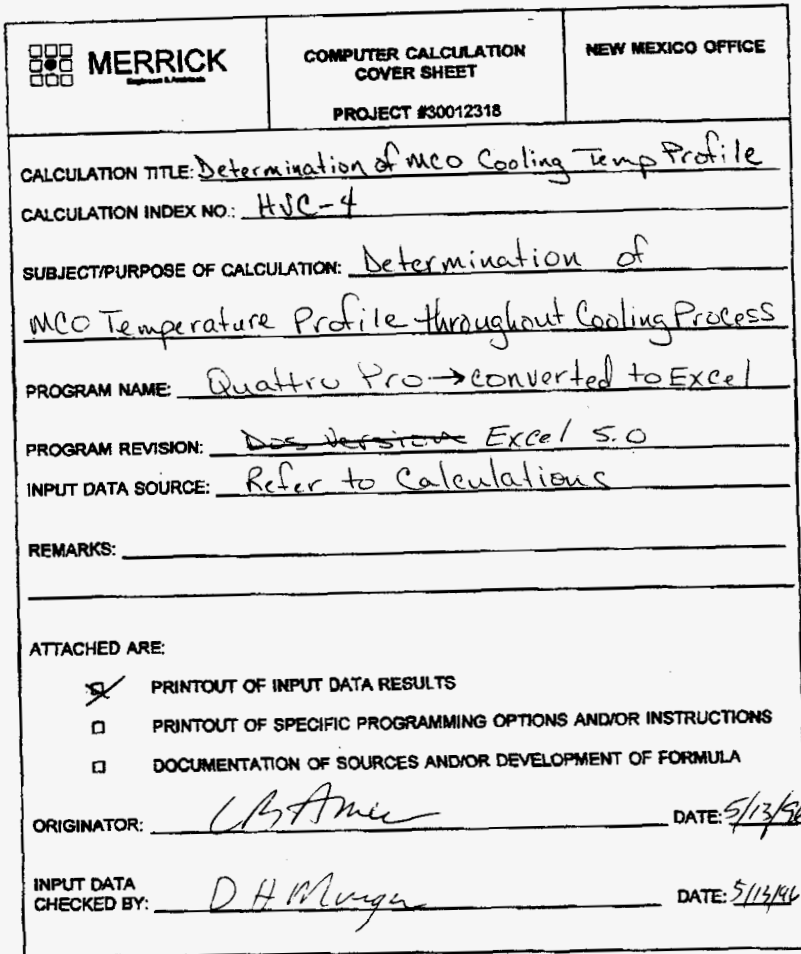 MERRICK
Engineers & Architects
COMPUTER CALCULATION
COVER SHEET
PROJECT #30012318
NEW MEXICO OFFICE
CALCULATION TITLE: Determination of MCO Cooling Temp Profile
CALCULATION INDEX NO.: HJC-4
SUBJECT/PURPOSE OF CALCULATION: Determination of
MCO Temperature Profile throughout Cooling Process
PROGRAM NAME: Quattro Pro → converted to Excel
PROGRAM REVISION: Dos Version Excel 5.0
INPUT DATA SOURCE: Refer to Calculations
REMARKS:
ATTACHED ARE:
PRINTOUT OF INPUT DATA RESULTS
PRINTOUT OF SPECIFIC PROGRAMMING OPTIONS AND/OR INSTRUCTIONS
DOCUMENTATION OF SOURCES AND/OR DEVELOPMENT OF FORMULA
ORIGINATOR: DATE: 5/13/96
INPUT DATA
CHECKED BY: D H DATE: 5/13/96